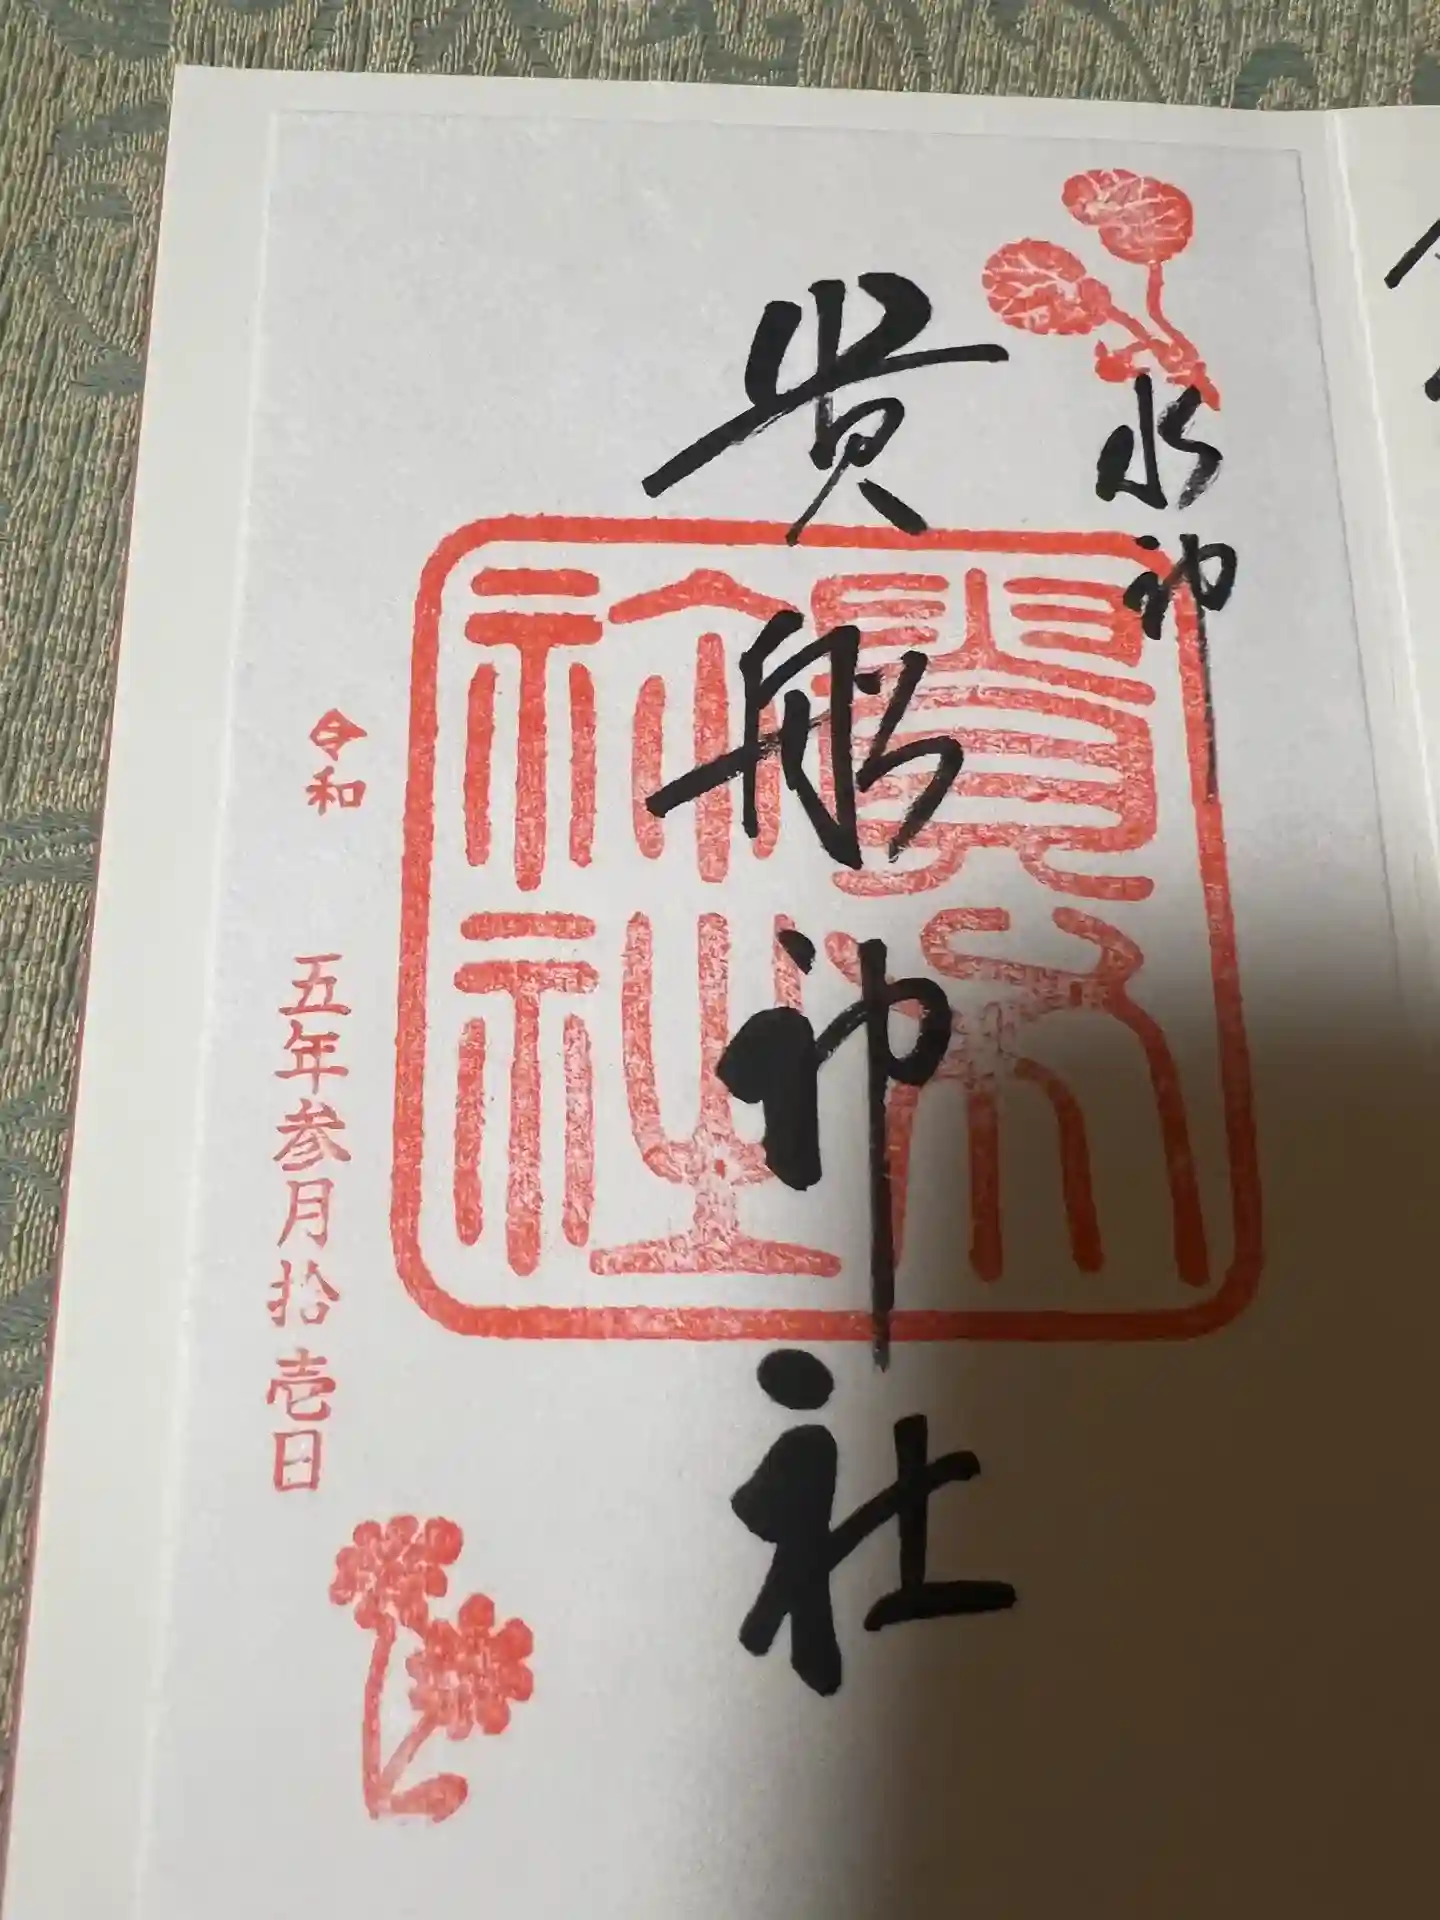 水神
貴船神社
貴船
神社
令和 五年参月拾壱日